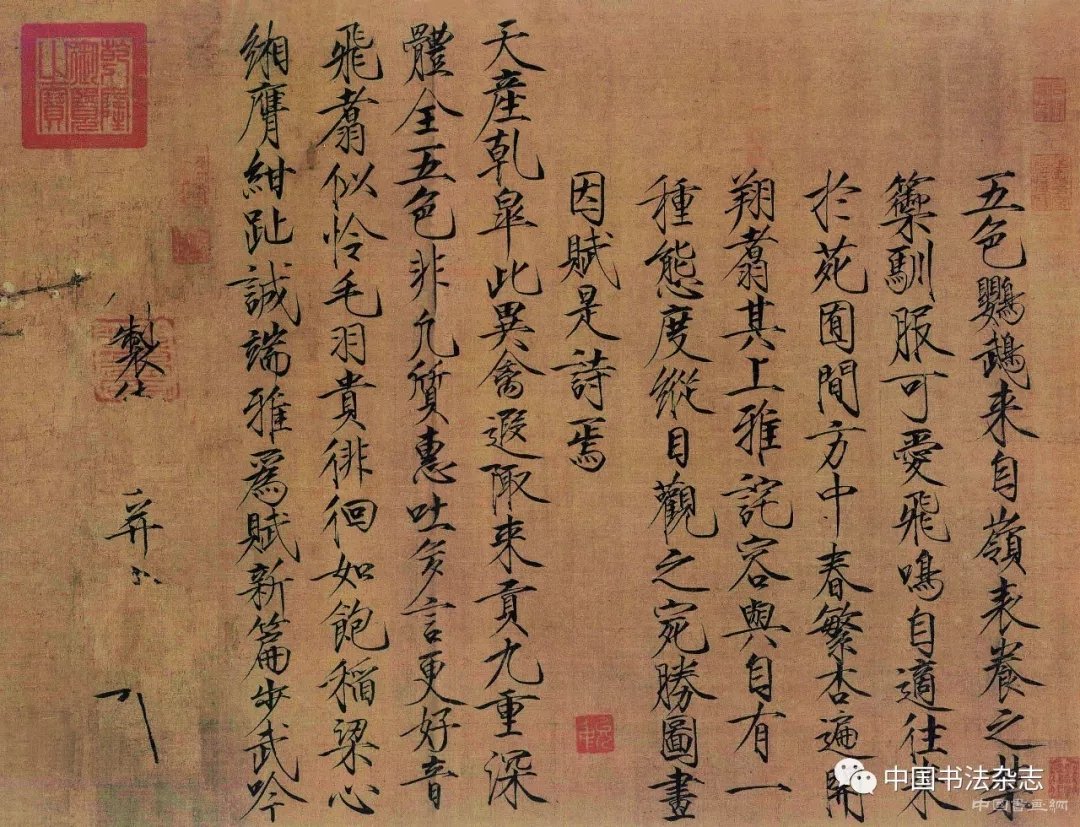 五色鸚鵡来自嶺表養之禁
籞馴服可愛飛鳴自適往来
於苑囿間方中春繁杏遍開
翔翥其上雅詫容與自有一
種態度縱目觀之宛勝圖畫
因賦是詩焉
天産乾皐此異禽遐陬来貢九重深
體全五色非凡質惠吐多言更好音
飛翥似怜毛羽貴徘徊如飽稻粱心
緗膺紺趾誠端雅爲賦新篇步武吟
製
并
乾隆御覽之寶
中国书法杂志
中国书画網